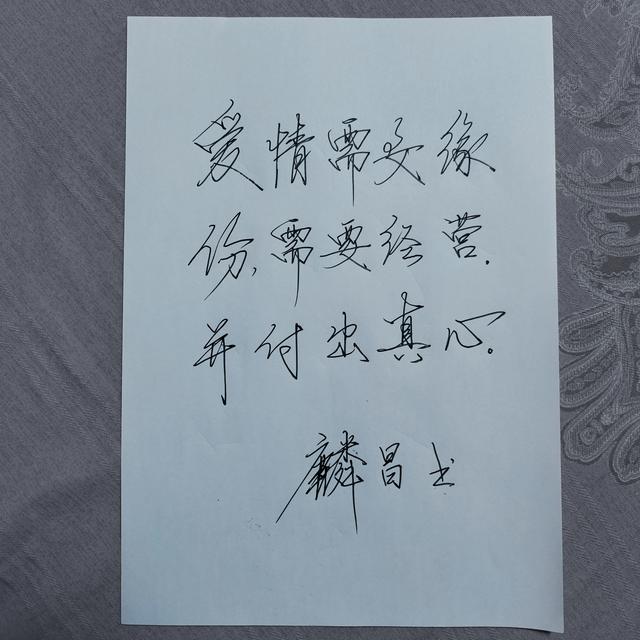 爱情需要缘
份,需要经营.
并付出真心.
麟昌书